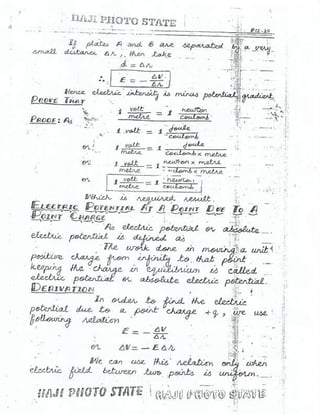 HAJI PHOTO STATE
P12-20
If plates A and B are separated by a very
small distance Δr, then take
d = Δr
∴ E = - ΔV/Δr
Hence electric intensity is minus potential gradient.
PROVE THAT
1 volt/metre = 1 newton/coulomb
PROOF: As 1 volt = 1 Joule/Coulomb
or 1 volt/metre = 1 Joule/Coulomb x metre
or 1 volt/metre = 1 newton x metre/coulomb x metre
or 1 volt/metre = 1 newton/coulomb
Which is required result
ELECTRIC POTENTIAL AT A POINT DUE TO A
POINT CHARGE
As electric potential or absolute
electric potential is defined as
The work done in moving a unit
positive charge from infinity to that point
keeping the charge in equilibrium is called
electric potential or absolute electric potential.
DERIVATION
In order to find the electric
potential due to a point charge +q, we use
following relation
E = - ΔV/Δr
or ΔV = - E Δr
We can use this relation only when
electric field between two points is uniform.
HAJI PHOTO STATE HAJI PHOTO STATE